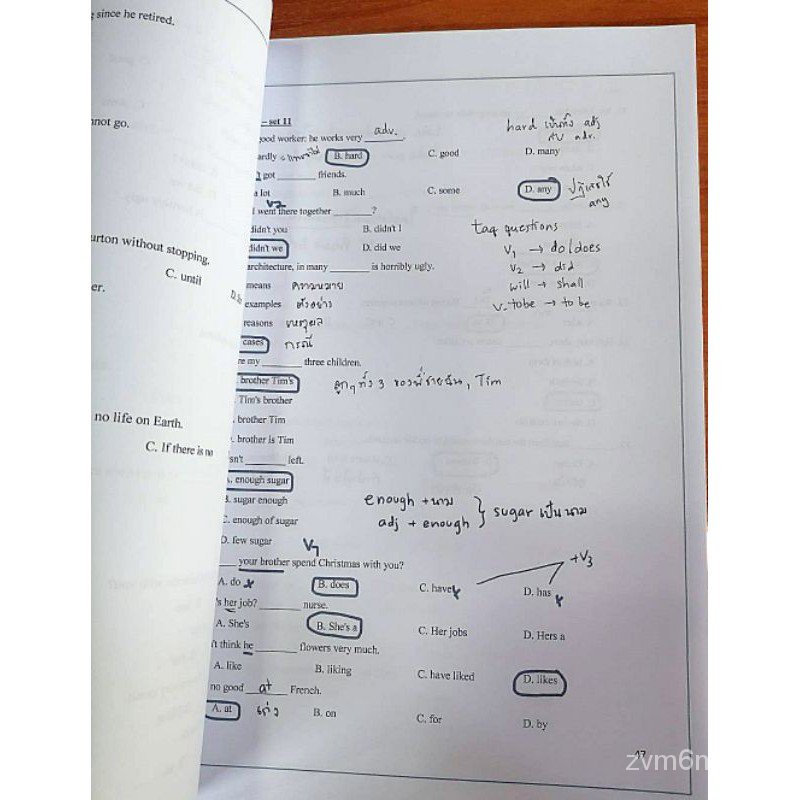 since he retired.
not go.
urton without stopping.
C. until
er.
no life on Earth.
C. If there is no
– set 11
good worker: he works very adv.
hard เป็นทั้ง adj
กับ adv.
ardly B. hard C. good D. many
got friends.
a lot B. much C. some D. any ปฏิเสธใช้
any
V2
I went there together ?
didn't you B. didn't I
didn't we D. did we
tag questions
V1 → do/does
V2 → did
will → shall
v.tobe → to be
architecture, in many is horribly ugly.
means ความหมาย
examples ตัวอย่าง
reasons เหตุผล
cases กรณี
re my three children.
brother Tim's ลูกๆทั้ง 3 ของพี่ชายฉัน, Tim
Tim's brother
brother Tim
brother is Tim
sn't left.
enough sugar
B. sugar enough
C. enough of sugar
D. few sugar
enough + นาม
adj + enough } sugar เป็นนาม
V1
your brother spend Christmas with you?
+V3
A. do x B. does C. have x D. has x
's her job? nurse.
A. She's B. She's a C. Her jobs D. Hers a
't think he flowers very much.
A. like B. liking C. have liked D. likes
no good at French.
A. at เก่ง B. on C. for D. by
47
zvm6m